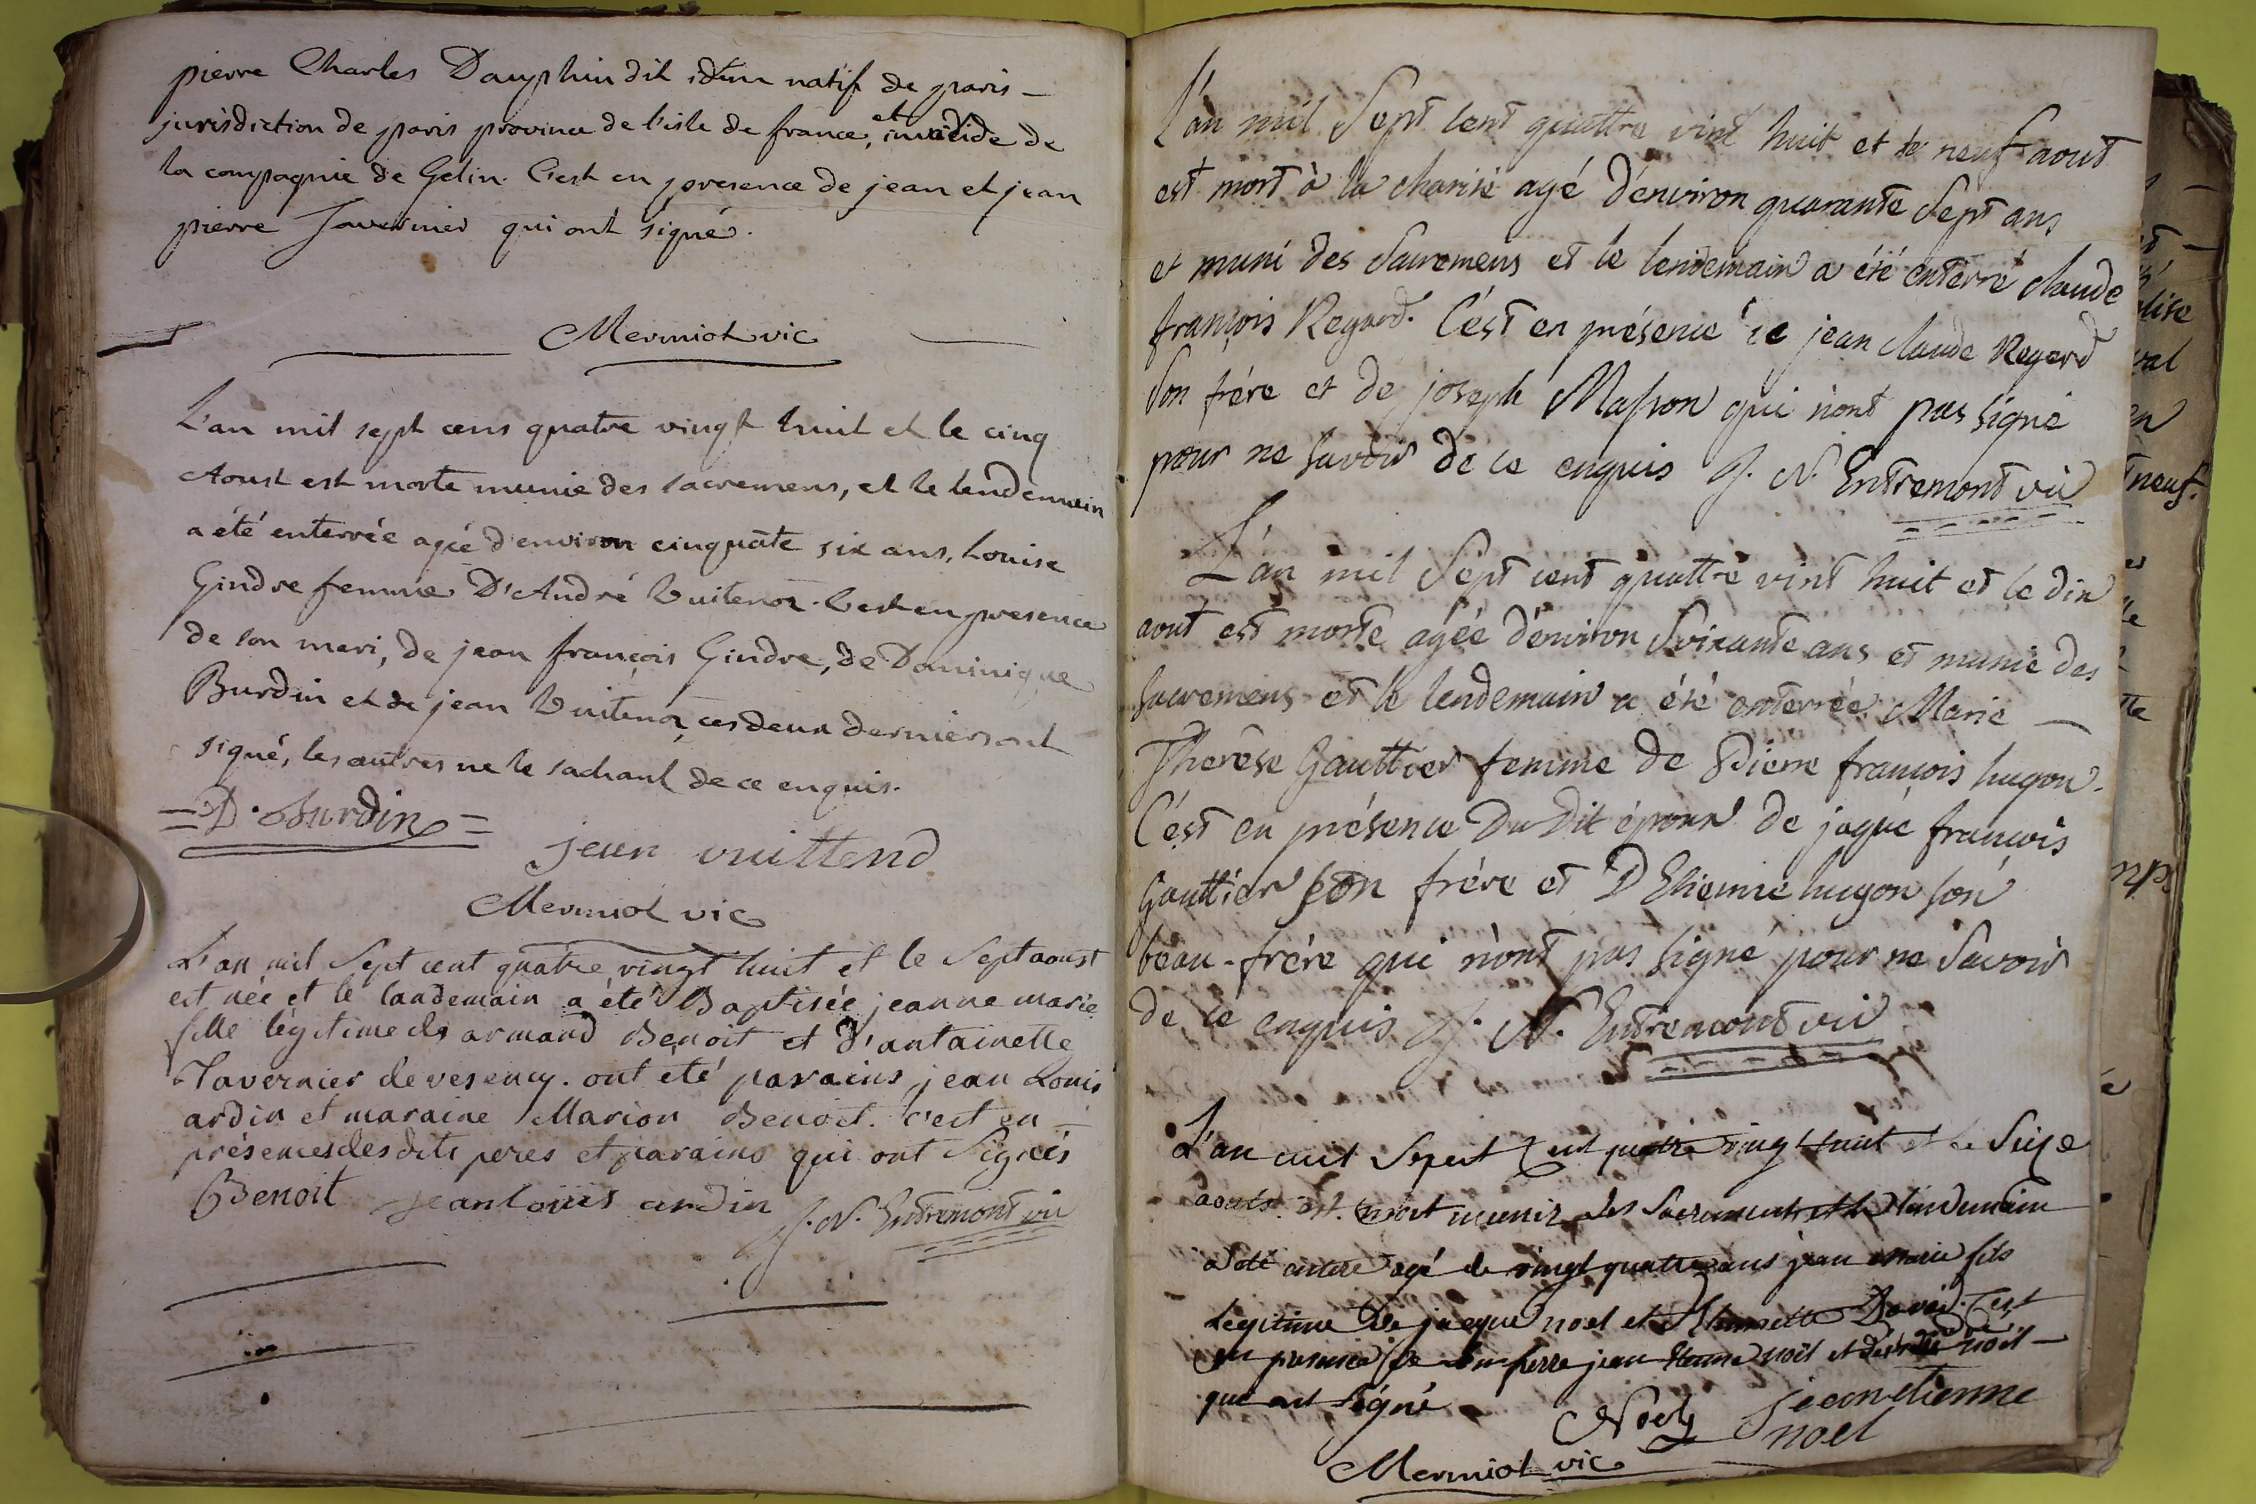 pierre Charles Dauphin dit idem natif de paris –
jurisdiction de paris province de l'isle de france, et invalide de
la compagnie de Gelin. C'est en presence de jean et jean
pierre Tavernier qui ont signé.
Mermiot vic
L'an mil sept cens quatre vingt huit et le cinq
Aoust est morte munie des sacremens, et le lendemain
a été enterrée agée d'environ cinquāte six ans, Louise
Gindre femme D'André Vuitenoz. C'est en presence
de son mari, de jean françois Gindre, de Dominique
Burdin et de jean Vuitenoz, ces deux derniers ont
signé, les autres ne le sachant de ce enquis.
= D. Burdin =
jean vuittend
Mermiot vic
L'an mil Sept cent quatre vingt huit et le Sept aoust
est née et le landemain a été Baptisée jeanne marie
fille légitime de armand Benoit et d'antainette
Tavernier de vesency. ont eté parains jean Louis
ardin et maraine Marion Benoit. c'est en
présences desdits peres et parains qui ont Signés
Benoit jean louis ardin J. N. Entremont vic
L'an mil Sept cent quattre vint huit et le neuf aout
est mort à la charité agé d'environ quarante Sept ans
et muni des Sacremens et le lendemain a été enterré claude
françois Regard. C'ést en présence de jean claude Regard
Son frére et de joseph Masson qui n'ont pas signé
pour ne Savoir de ce enquis J. N. Entremont vic
L'an mil Sept cent quattre vint huit et le dix
aout est morte agée d'énviron Soixante ans et munie des
Sacremens et le lendemain a été enterrée Marie –
Thérèse Gauttier femme de Pierre françois hugon.
C'ést en présence Du Dit époux de jaque francois
Gauttier son frére et D Etienne hugon son
beau-frére qui n'ont pas signé pour ne Savoir
de ce enquis J. N. Entremont vic
L'an mil Sept Cent quatre vingt huit et le Seize
aoust est mort munit des Sacrements et le landemain
a été enteré agé de vingt quattre ans jean marie fils
Legitime De jacque noel et David. C'est
en presence de Son perre jean Etienne noël et noël –
qui ont Signé
Noel jean etienne
noel
Mermiot vic